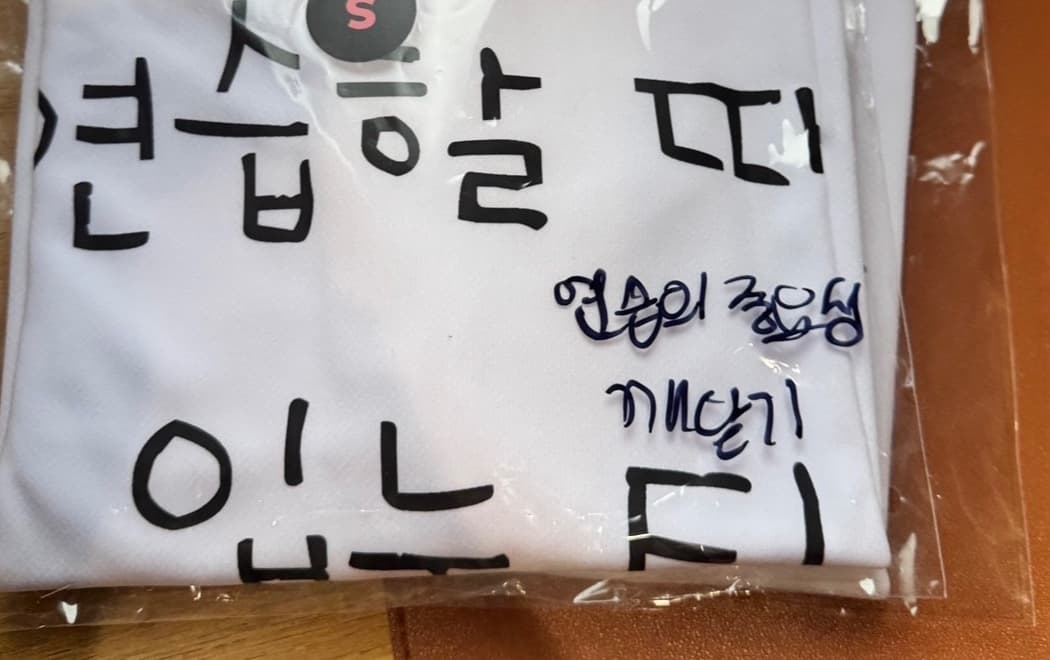 S
연습할 때
연습의 중요성
깨달기
입는 티